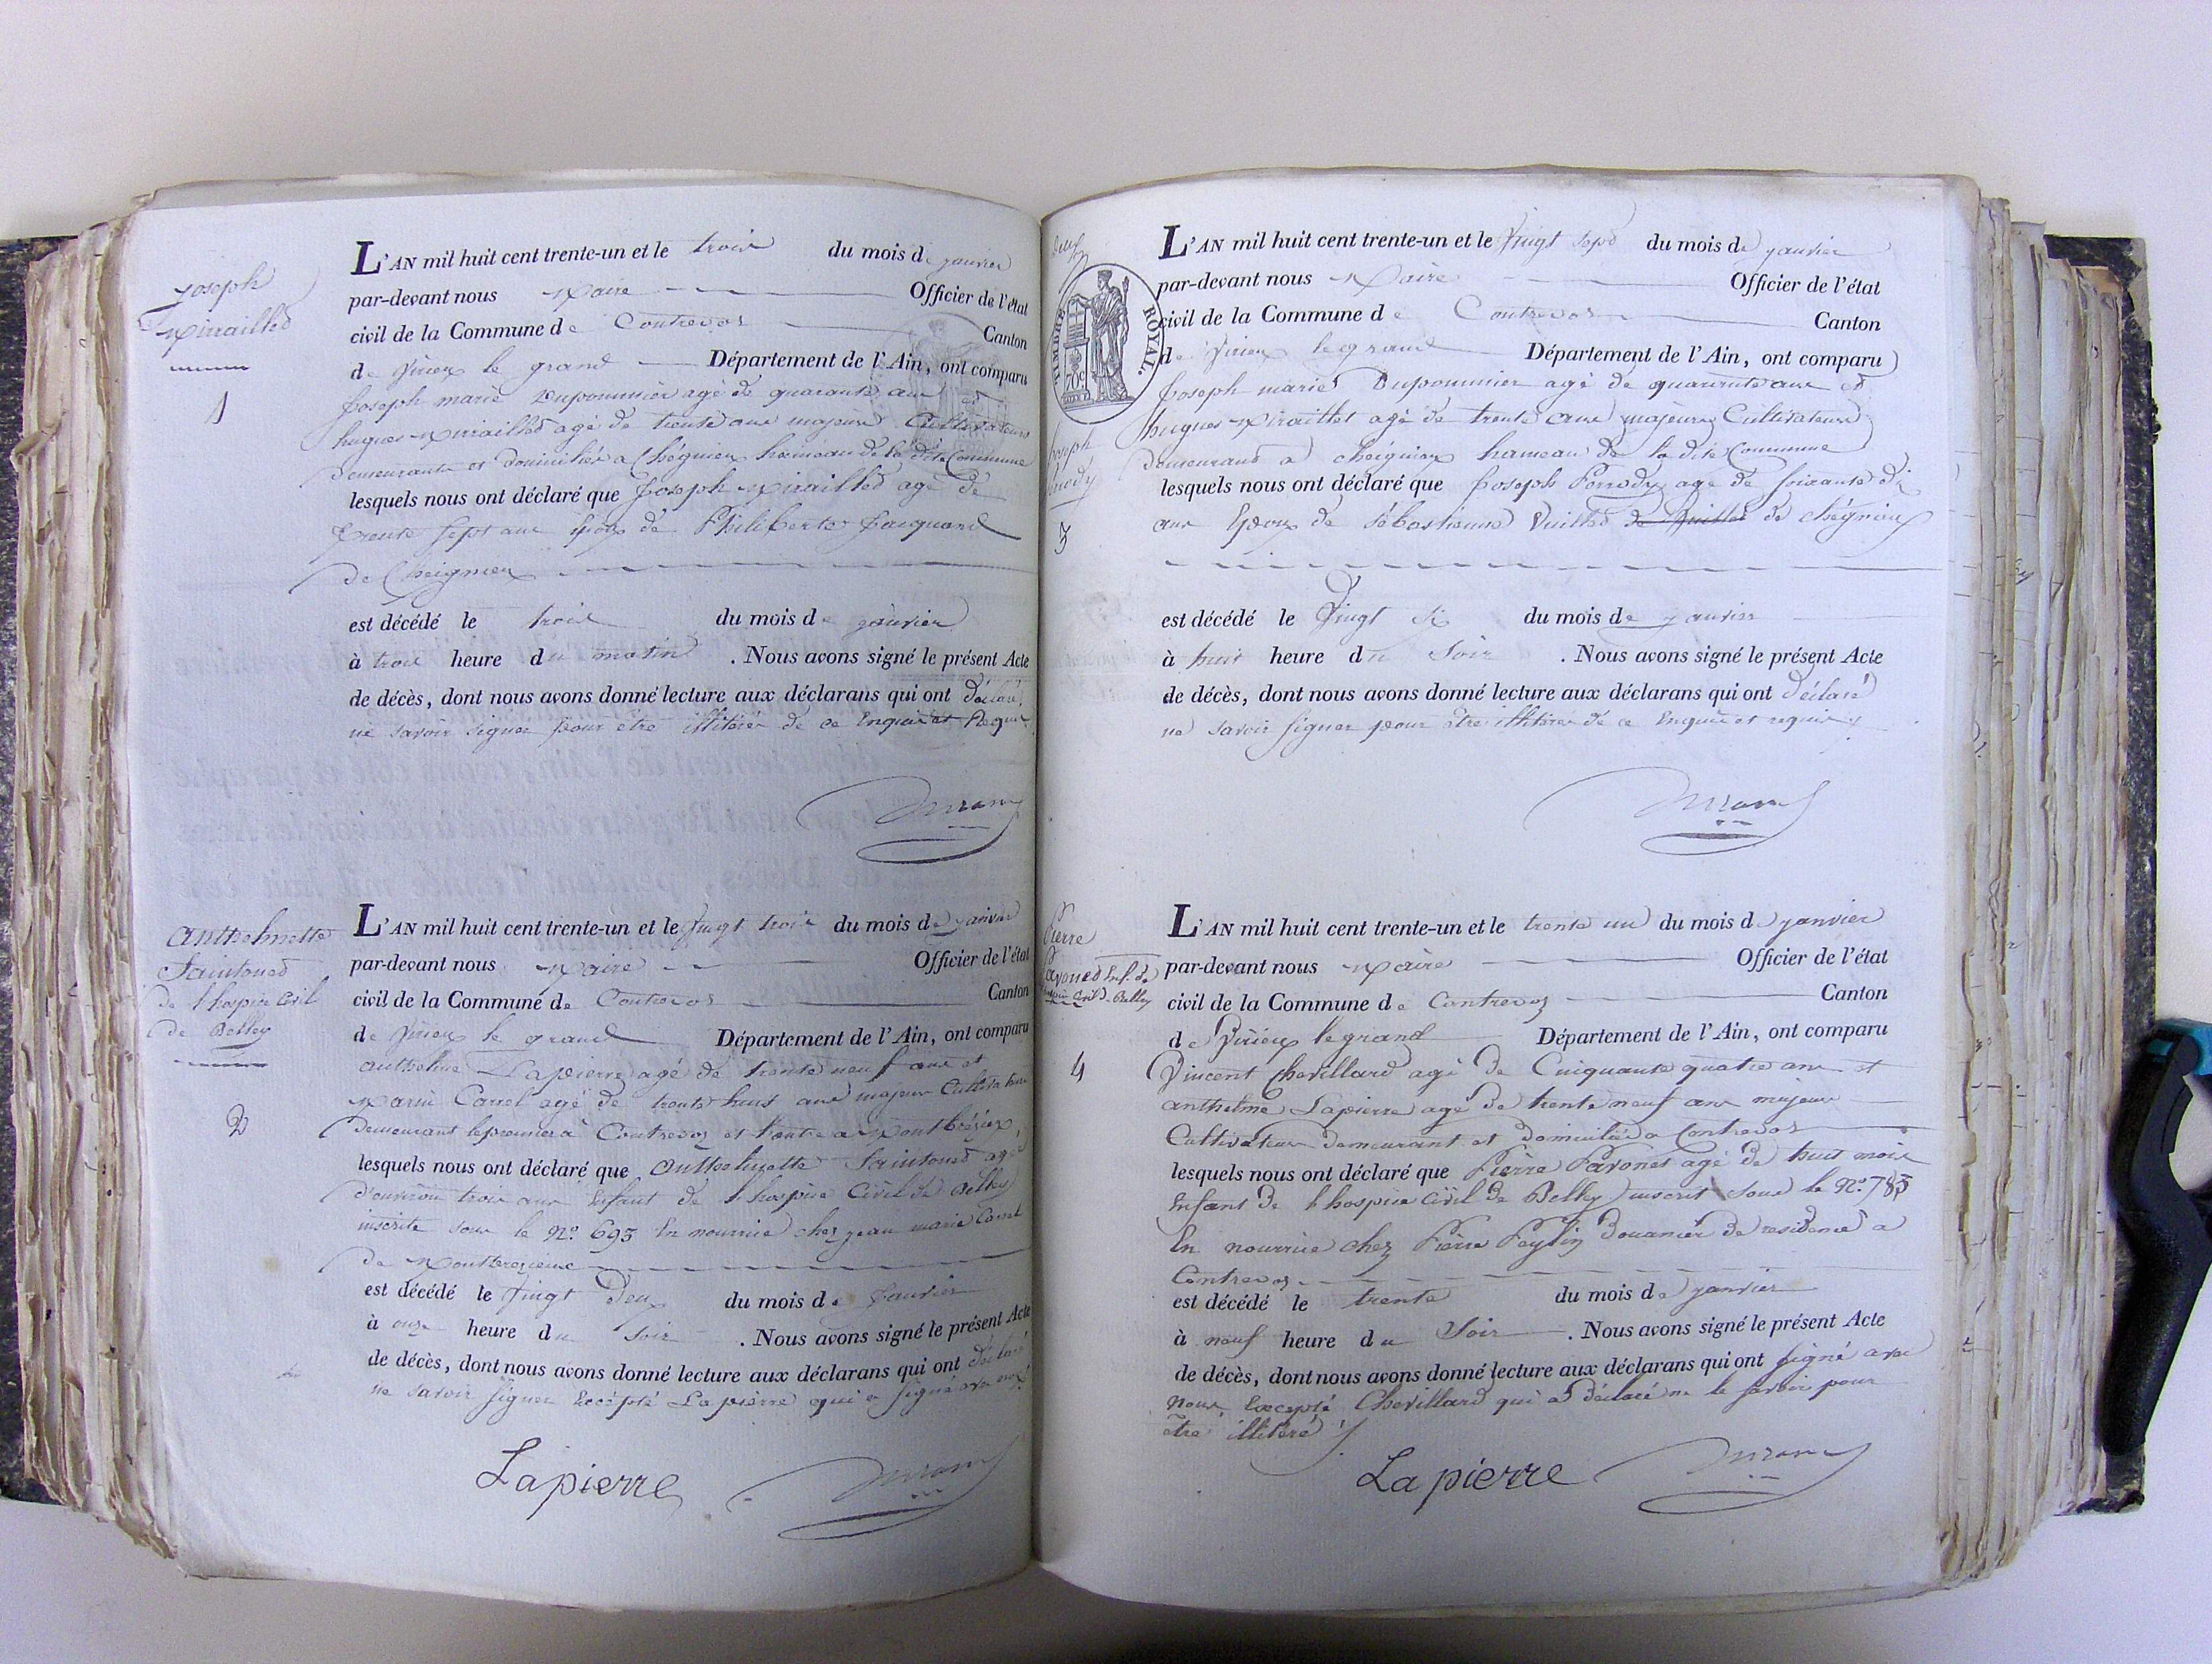 Joseph
Miraillet
1
L'AN mil huit cent trente-un et le trois du mois de janvier
par-devant nous Maire Officier de l'état
civil de la Commune de Contrevoz Canton
de Virieu le grand Département de l'Ain, ont comparu
Joseph marie Dupommier agé de quarante ans et
hugues Miraillet agé de trente ans majeurs Cultivateurs
demeurants et domiciliés a Cheignieu hameau de la dite Commune
lesquels nous ont déclaré que Joseph Miraillet agé de
trente sept ans Epoux de Philiberte Jacquand
de Cheignieu
est décédé le trois du mois de janvier
à trois heure du matin . Nous avons signé le présent Acte
de décès, dont nous avons donné lecture aux déclarans qui ont déclaré
ne savoir signer pour être illitérés de ce Enquis et Requis
Anthelmette
Saintonet
de l'hospice Civil
de Belley
2
L'AN mil huit cent trente-un et le vingt trois du mois de janvier
par-devant nous Maire Officier de l'état
civil de la Commune de Contrevoz Canton
de Virieu le grand Département de l'Ain, ont comparu
anthelme Lapierre agé de trente neuf ans et
Marie Carrel agé de trente huit ans majeurs Cultivateurs
demeurant le premier à Contrevoz et l'autre a Montbrézieu
lesquels nous ont déclaré que Anthelmette Saintonet agée
d'environ trois ans Enfant de l'hospice Civil de Belley
inscrite sous le N.º 693 En nourrice chez jean marie Carrel
de
est décédé le vingt deux du mois de Janvier
à onze heure du Soir . Nous avons signé le présent Acte
de décès, dont nous avons donné lecture aux déclarans qui ont déclaré
ne savoir signer Excépté Lapierre qui a signé avec nous
Lapierre
deux
TIMBRE ROYAL.
70c
Joseph
3
L'AN mil huit cent trente-un et le vingt sept du mois de janvier
par-devant nous Maire Officier de l'état
civil de la Commune de Contrevoz Canton
de Virieu le grand Département de l'Ain, ont comparu
Joseph marie Dupommier agé de quarante ans et
hugues Miraillet agé de trente ans majeurs Cultivateurs
demeurand a cheignieu hameau de la dite Commune
lesquels nous ont déclaré que Joseph Perrody agé de soixante dix
ans Epoux de Sébastienne Vuillet de Vuillet de cheignieu
est décédé le Vingt six du mois de janvier
à huit heure du Soir . Nous avons signé le présent Acte
de décès, dont nous avons donné lecture aux déclarans qui ont déclaré
ne savoir signer pour être illitérés de ce Enquis et requis
Pierre
Pavonet Enf. de
l'hospice Civil de Belley
4
L'AN mil huit cent trente-un et le trente un du mois de janvier
par-devant nous Maire Officier de l'état
civil de la Commune de Contrevoz Canton
de Virieu le grand Département de l'Ain, ont comparu
Vincent Chevillard agé de Cinquante quatre ans et
anthelme Lapierre agé de trente neuf ans majeurs
Cultivateurs demeurant et domiciliés a Contrevoz
lesquels nous ont déclaré que Pierre Pavonet agé de huit mois
Enfant de l'hospice Civil de Belley inscrit sous le N.º 783
En nourrice chez Pierre Peylin Douanier de residence a
Contrevoz
est décédé le trente du mois de janvier
à neuf heure du Soir . Nous avons signé le présent Acte
de décès, dont nous avons donné lecture aux déclarans qui ont signé avec
nous Excepté Chevillard qui a déclaré ne le savoir pour
être illitéré
Lapierre